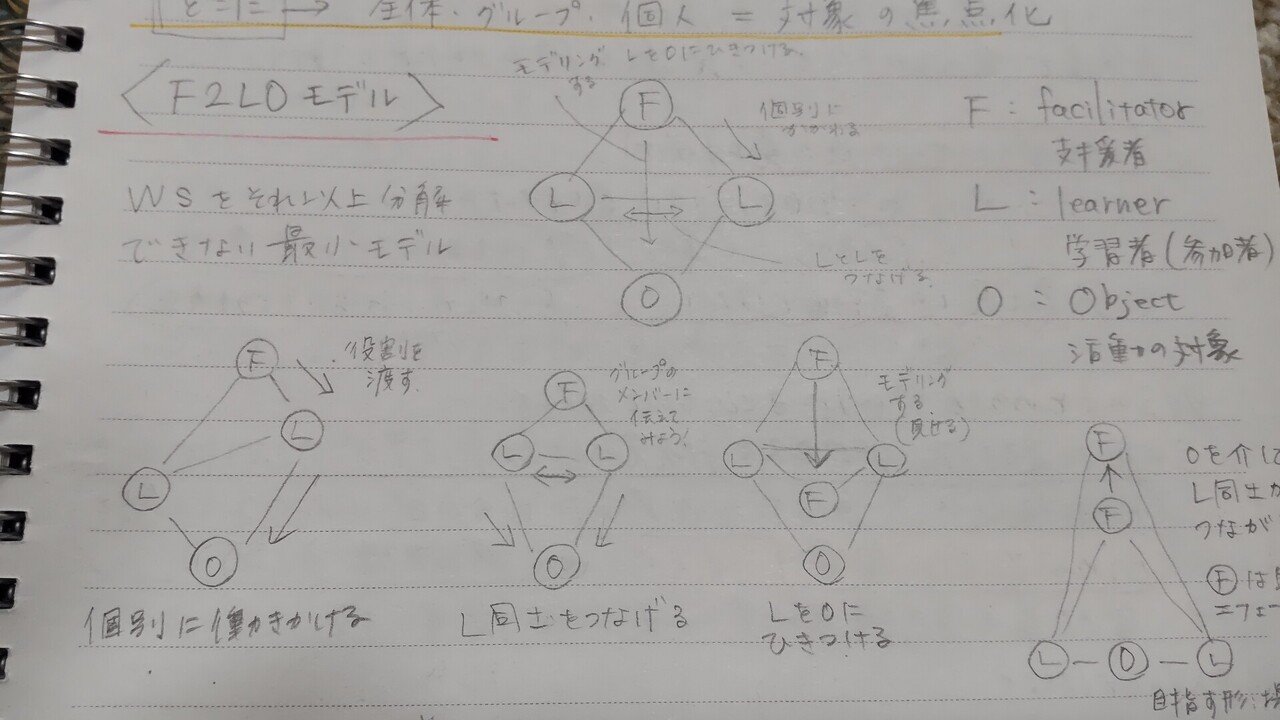 どこに → 全体・グループ・個人 = 対象の焦点化
〈F2LOモデル〉
WSをそれ以上分解
できない最小モデル
モデリング
する
LをOにひきつける
F
個別に
かかわる
L
L
LとLを
つなげる
O
F : facilitator
支援者
L : learner
学習者(参加者)
O : Object
活動の対象
F
役割を
渡す
L
L
O
個別に働きかける
F
グループの
メンバーに
伝えて
みよう!
L
L
O
L同士をつなげる
F
モデリング
する
(見せる)
L
L
F
O
LをOに
ひきつける
F
F
Oを介し
L同士が
つなが
Fは
L - O - L
目指す形